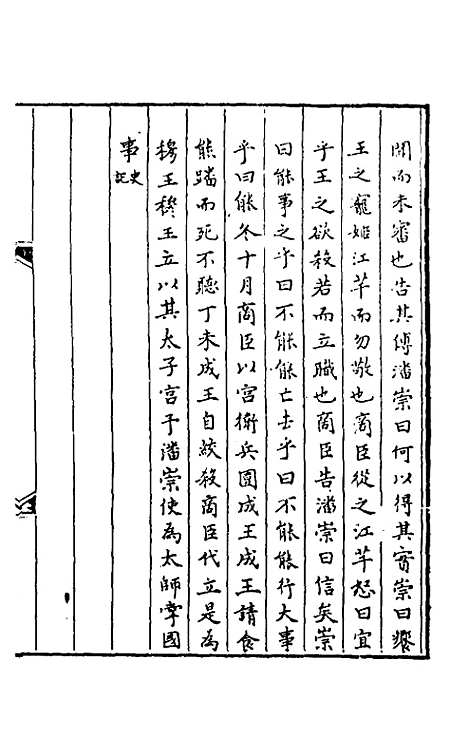 聞而未審也告其傅潘崇曰何以得其實崇曰饗
王之寵姬江芊而勿敬也商臣從之江芊怒曰宜
乎王之欲殺若而立職也商臣告潘崇曰信矣崇
曰能事之乎曰不能能亡去乎曰不能能行大事
乎曰能冬十月商臣以宮衛兵圍成王成王請食
熊蹯而死不聽丁未成王自絞殺商臣代立是為
穆王穆王立以其太子宮予潘崇使為太師掌國
事史記